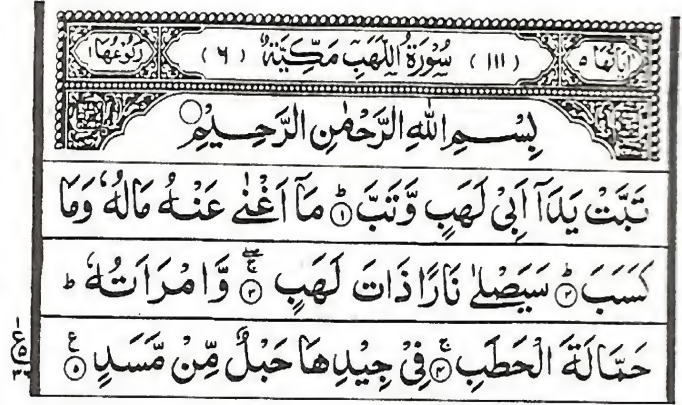 اٰيَاتُهَا ٥ (١١١) سُوْرَةُ اللَّهَبِ مَكِّيَّةٌ (٦) رُكُوْعُهَا ١
بِسْمِ اللهِ الرَّحْمٰنِ الرَّحِيْمِ
تَبَّتْ يَدَآ اَبِيْ لَهَبٍ وَّتَبَّ ؕ ۝١ مَاۤ اَغْنٰى عَنْهُ مَالُهٗ وَمَا
كَسَبَ ؕ ۝٢ سَيَصْلٰى نَارًا ذَاتَ لَهَبٍ ۝٣ وَّامْرَاَتُهٗ ؕ
حَمَّالَةَ الْحَطَبِ ۚ ۝٤ فِيْ جِيْدِهَا حَبْلٌ مِّنْ مَّسَدٍ ۝٥